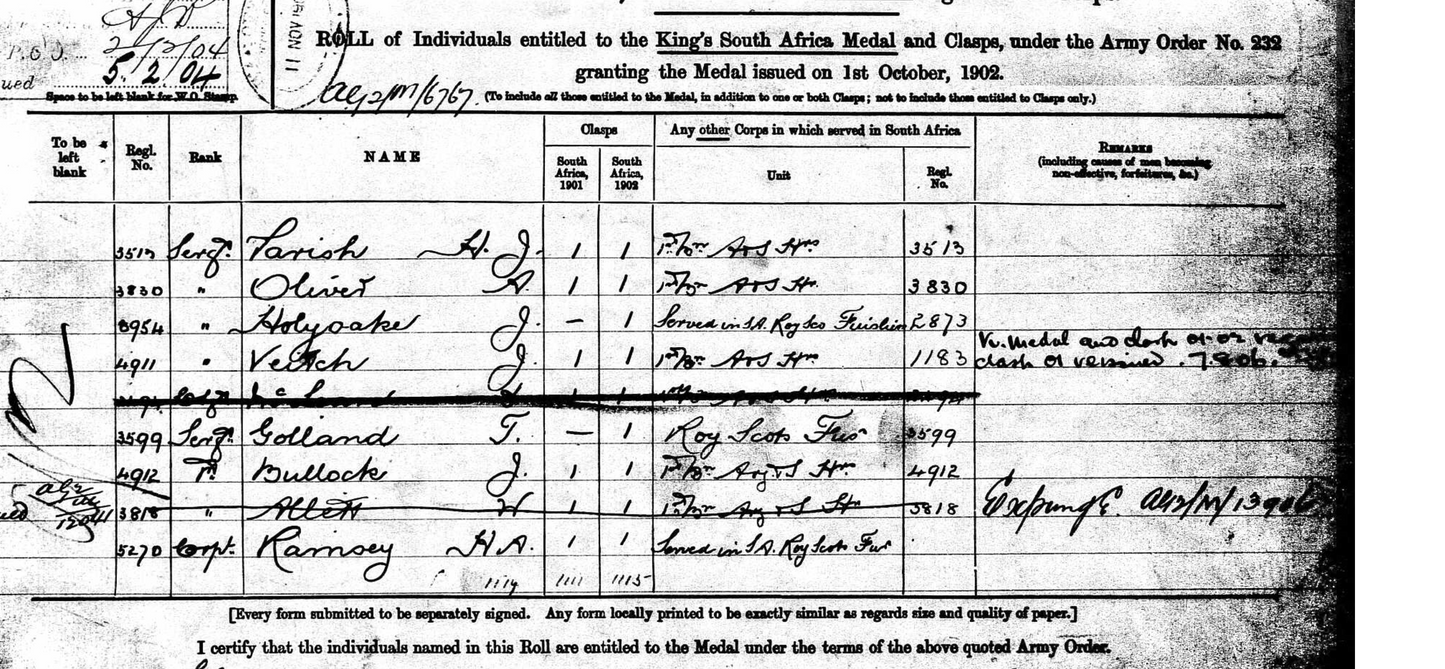 P. O J. 2/2/04
5/2/04
Space to be left blank for W.O. Stamp.
11 NOV
ROLL of Individuals entitled to the King's South Africa Medal and Clasps, under the Army Order No. 232
granting the Medal issued on 1st October, 1902.
AG/2/M/6767.
(To include all those entitled to the Medal, in addition to one or both Clasps; not to include those entitled to Clasps only.)
To be left blank
Regl. No.
Rank
NAME
Clasps
South Africa, 1901
South Africa, 1902
Any other Corps in which served in South Africa
Unit
Regl. No.
REMARKS
(including causes of men becoming non-effective, forfeitures, &c.)
3513 Sergt. Parish H. J. 1 1 1st Bn A & S Hrs 3513
3830 " Oliver A. 1 1 1st Bn A & S Hrs 3830
3954 " Holyoake J. — 1 Served in S.A. Roy Sco Fusiliers 2873
4911 " Veitch J. 1 1 1st Bn A & S Hrs 1183
3599 Sergt. Golland T. — 1 Roy Scots Fus 3599
4912 Pt. Bullock J. 1 1 1st Bn Arg & S Hrs 4912
3818 " Allett W 1st Bn Arg & S Hrs 3818 Expunge. AG2/M/13906
5270 Corpl. Ramsey H. A. 1 1 Served in S.A. Roy Scots Fus
[Every form submitted to be separately signed. Any form locally printed to be exactly similar as regards size and quality of paper.]
I certify that the individuals named in this Roll are entitled to the Medal under the terms of the above quoted Army Order.